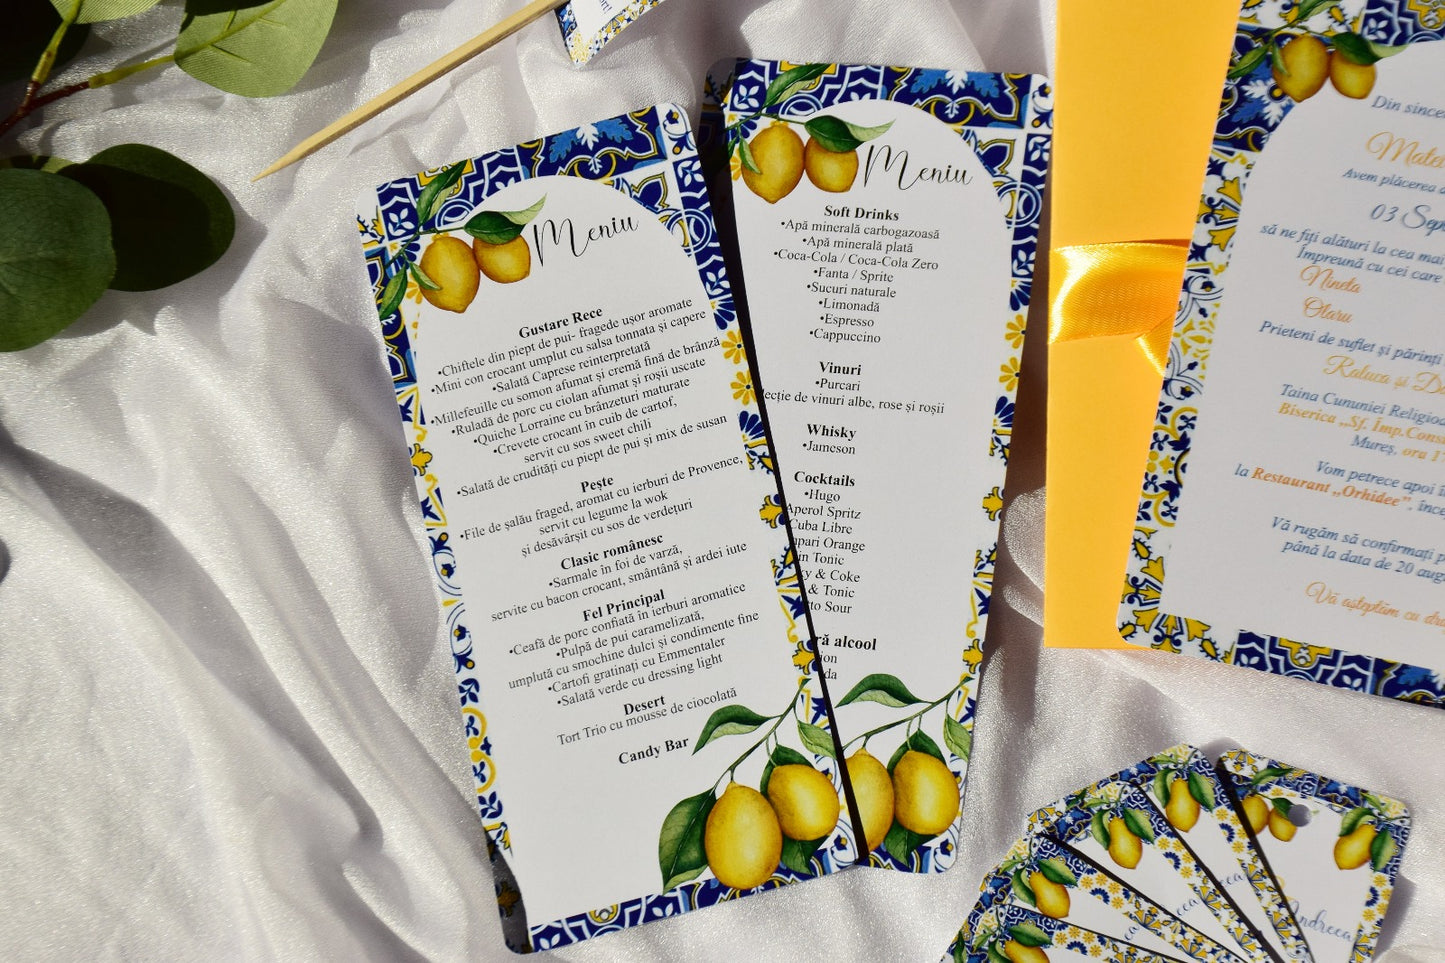 Meniu
Gustare Rece
•Chiftele din piept de pui- fragede ușor aromate
•Mini con crocant umplut cu salsa tonnata și capere
•Salată Caprese reinterpretată
•Millefeuille cu somon afumat și cremă fină de brânză
•Ruladă de porc cu ciolan afumat și roșii uscate
•Quiche Lorraine cu brânzeturi maturate
•Crevete crocant în cuib de cartof,
servit cu sos sweet chili
•Salată de crudități cu piept de pui și mix de susan
Pește
•File de șalău fraged, aromat cu ierburi de Provence,
servit cu legume la wok
și desăvârșit cu sos de verdețuri
Clasic românesc
•Sarmale în foi de varză,
servite cu bacon crocant, smântână și ardei iute
Fel Principal
•Ceafă de porc confiată în ierburi aromatice
•Pulpă de pui caramelizată,
umplută cu smochine dulci și condimente fine
•Cartofi gratinați cu Emmentaler
•Salată verde cu dressing light
Desert
Tort Trio cu mousse de ciocolată
Candy Bar
Meniu
Soft Drinks
•Apă minerală carbogazoasă
•Apă minerală plată
•Coca-Cola / Coca-Cola Zero
•Fanta / Sprite
•Sucuri naturale
•Limonadă
•Espresso
•Cappuccino
Vinuri
•Purcari
de vinuri albe, rose și roșii
Whisky
•Jameson
Cocktails
•Hugo
Aperol Spritz
Cuba Libre
Orange
Tonic
& Coke
& Tonic
Sour
alcool
Din
Avem plăcerea
03
să ne fiți alături la cea mai
Împreună cu cei care
Nineta
Olaru
Prieteni de suflet și părinți
Raluca și
Taina Cununiei
Biserica „Sf. Imp.
Mureș, ora
Vom petrece apoi
la Restaurant „Orhidee”,
Vă rugăm să confirmați
până la data de 20
Vă așteptăm cu
Andreea